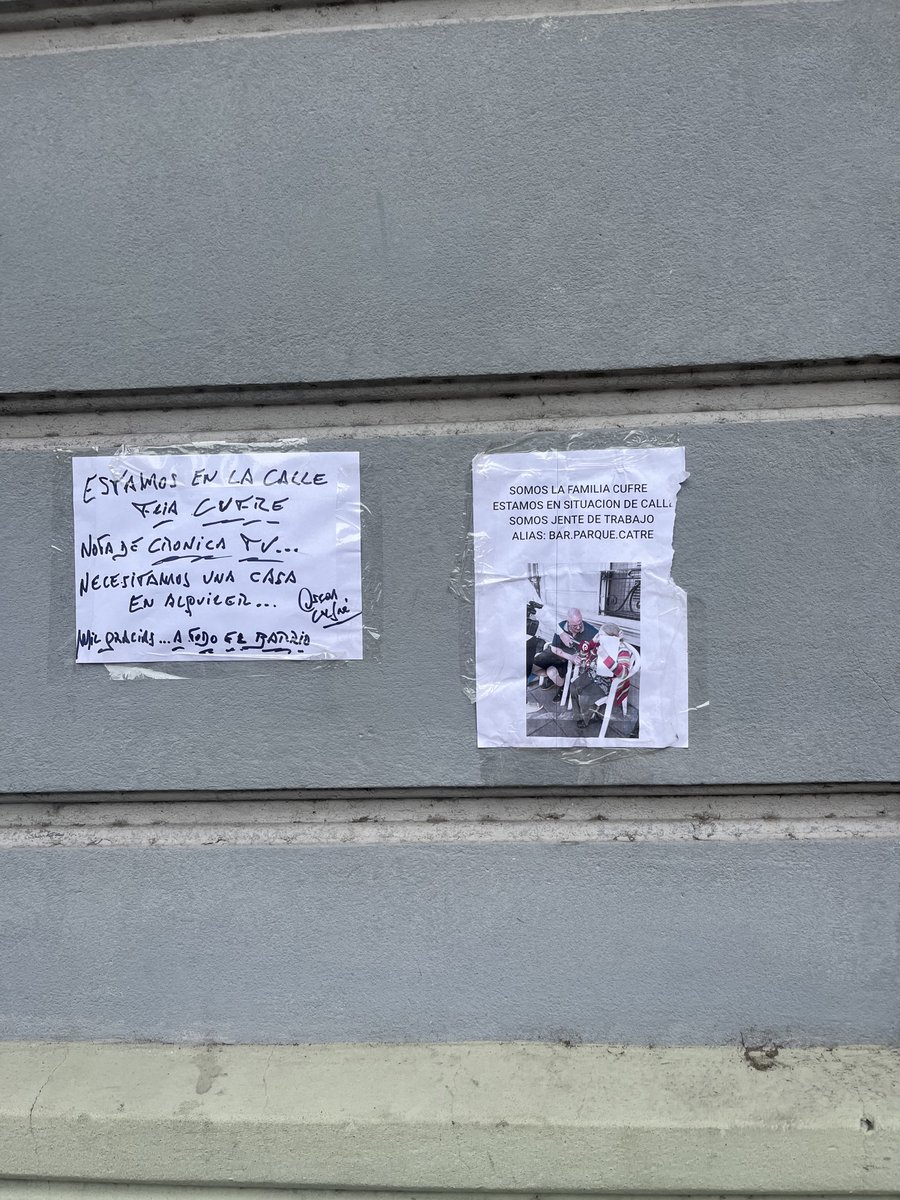 ESTAMOS EN LA CALLE
FLIA CUFRE
NOTA DE CRONICA TV...
NECESITAMOS UNA CASA
EN ALQUILER...
Oscar Cufré
MIL GRACIAS... A TODO EL BARRIO
SOMOS LA FAMILIA CUFRE
ESTAMOS EN SITUACION DE CALLE
SOMOS JENTE DE TRABAJO
ALIAS: BAR.PARQUE.CATRE